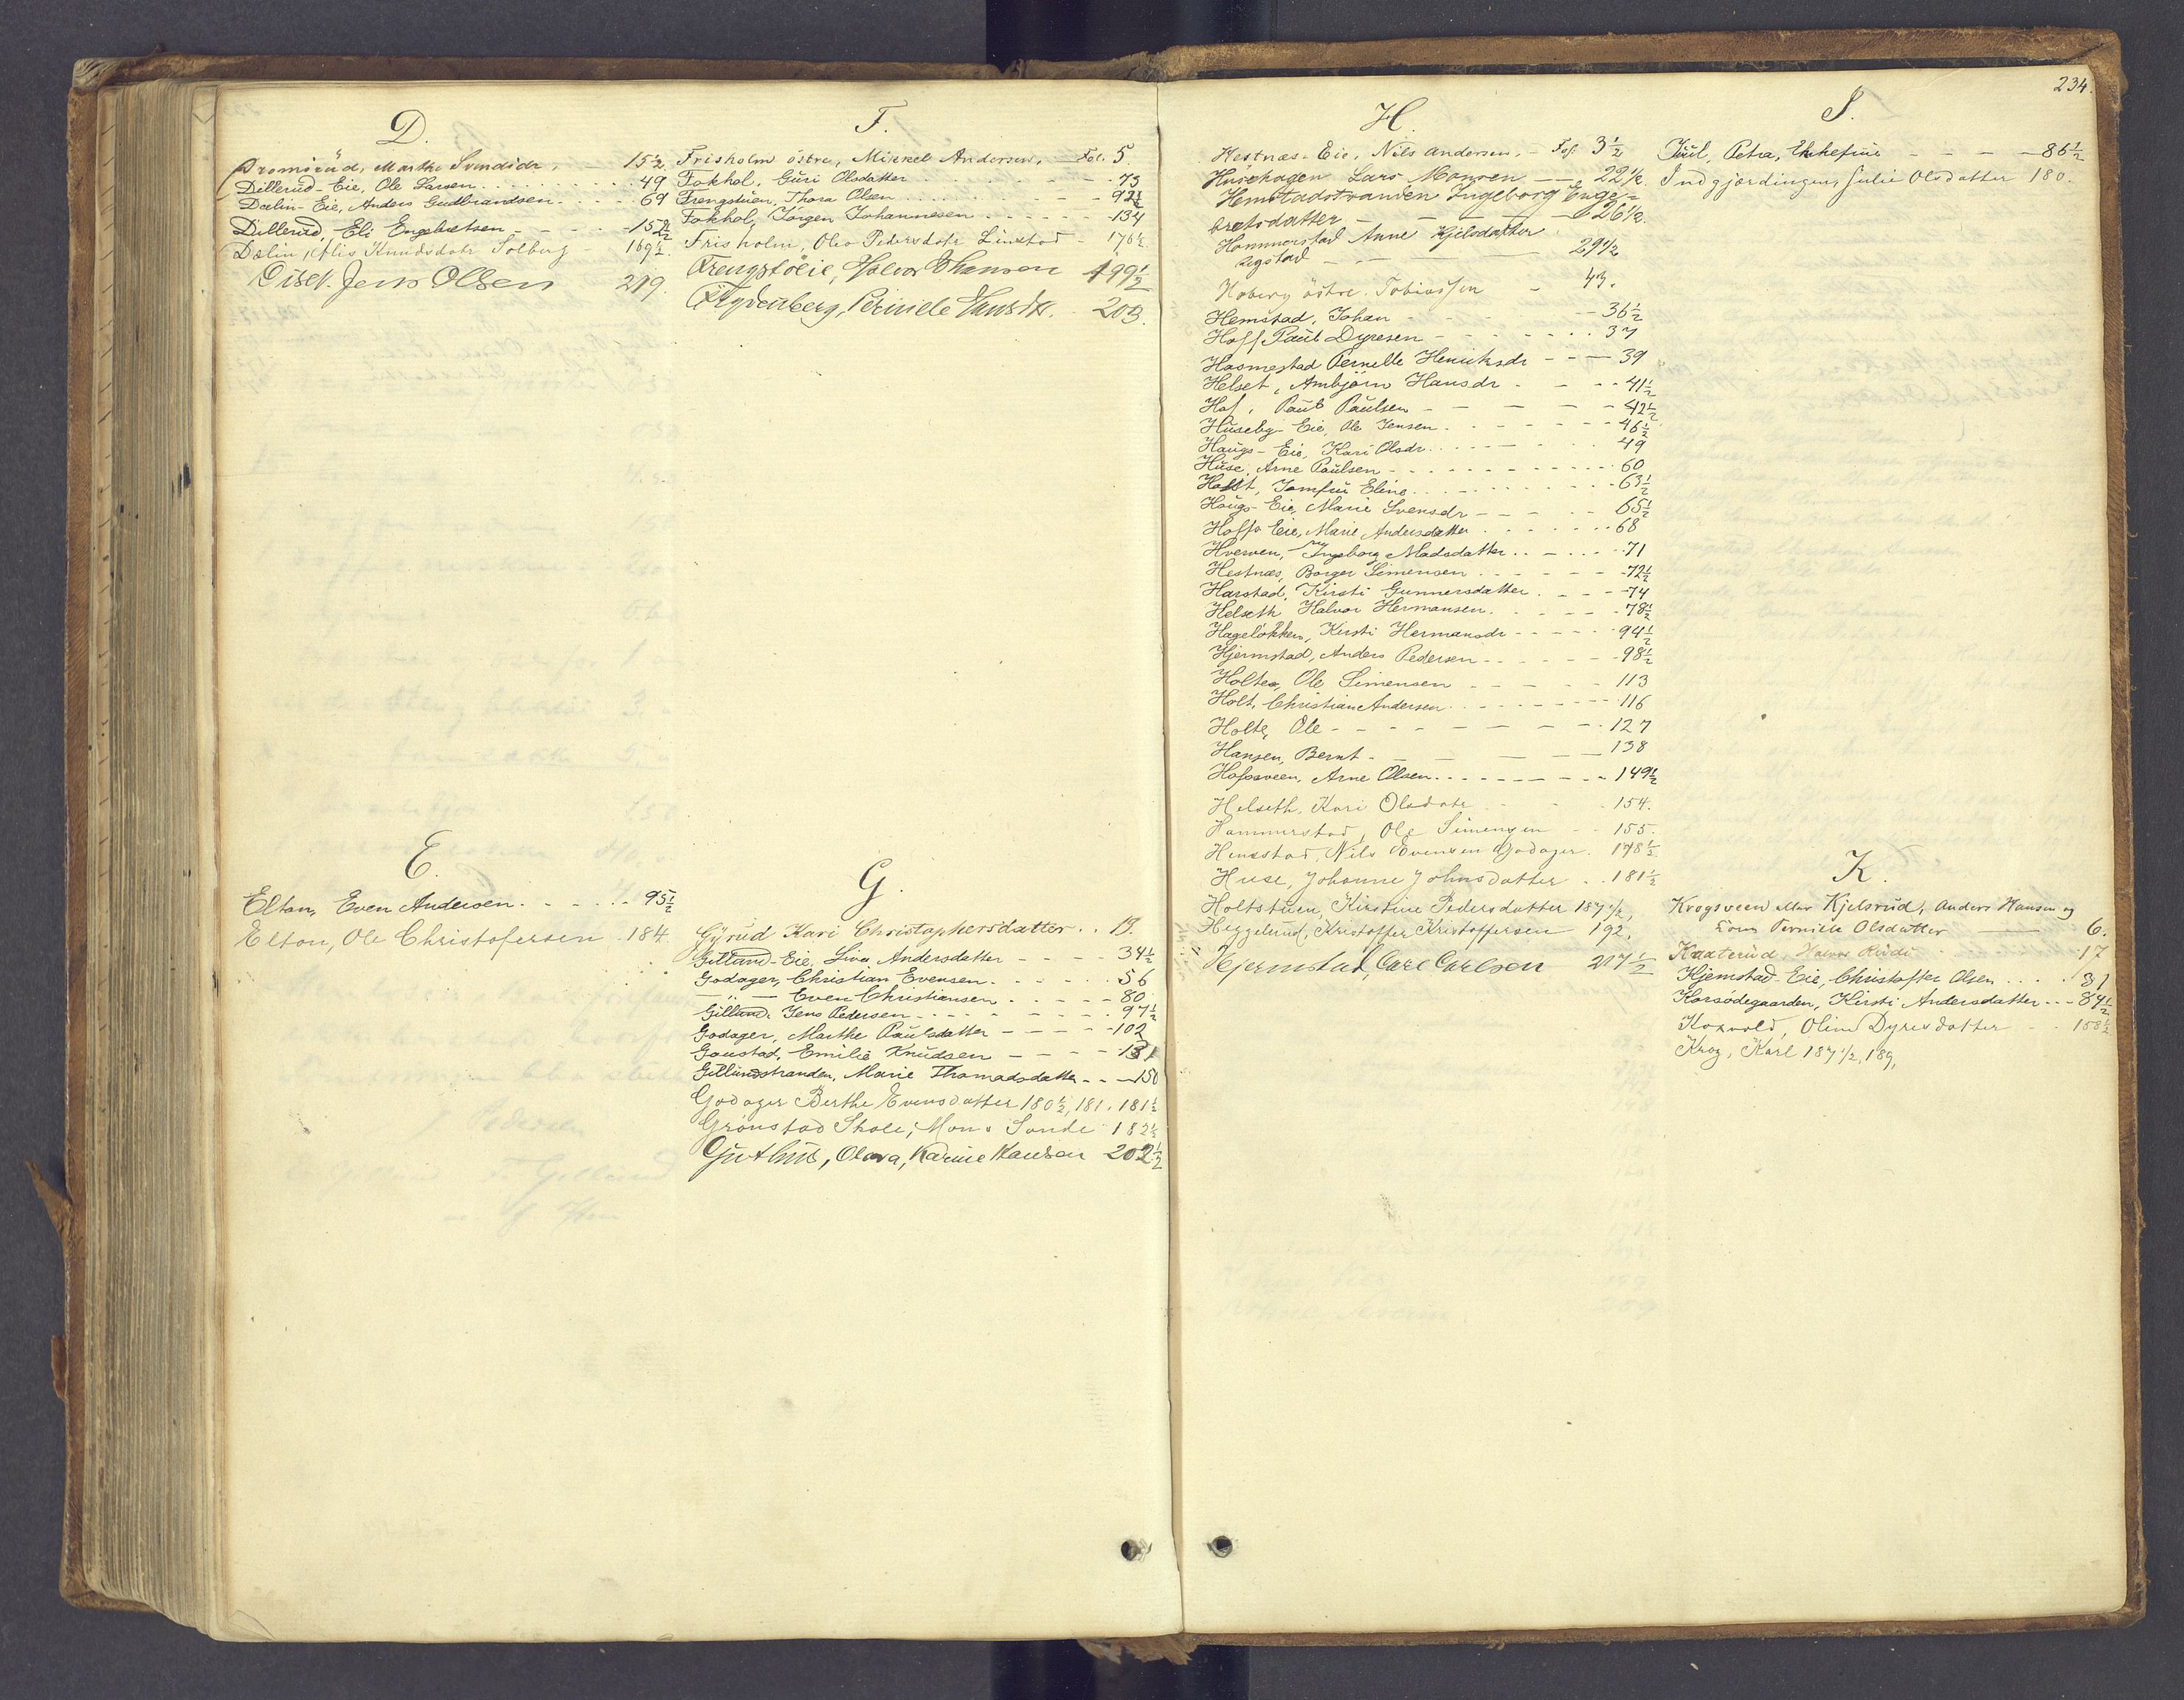 D.
Dromsrud, Marthe Svendsdr. 15½
Dillerud-Eie, Ole Larsen 49
Dælin-Eie, Anders Gudbrandsen 69
Dillerud Eli Engebretsen 152½
Dælin, Knudsdatr Solberg 169½.
Diset. Jens Olsen 219.
E.
Elton, Even Andersen 95½
Elton, Ole Christofersen 184.
F.
Frisholm östre, Mikkel Andersen, Fol. 5.
Fokhol, Guri Olsdatter 73
Frengstuen, Thora Olsen 92½
Fokhol, Jörgen Johannesen 134
Frisholm, Olea Pedersdatr Linstad 176½
Frengstöeie, Halvor Hansen 199½
Flydenberg, Pernele Hansdtr. 203.
G.
Gyrud Kari Christophersdatter 19.
Gillund-Eie, Liva Andersdatter 34½
Godager, Christian Evensen 56
— " — Even Christiansen 80
Gillund Jens Pedersen 97½
Godager, Marthe Paulsdatter 102
Gaustad, Emilie Knudsen 131
Gillundstranden, Marie Thomadsdatter 150
Godager Berthe Evensdatter 180½, 181, 181½
Grönstad Skole, Mons Sande 182½
Guthus, Olava, Karine Hansen 202½
234.
H.
Hestnæs-Eie, Nils Andersen, Fol. 3½
Husehagen Lars Monsen 22½.
Hemstadstranden Ingeborg Enge=
bretsdatter 26½.
Hammerstad Anne Kjelsdatter
Aegstad 29½
Hoberg östre. Tobiassen 43.
Hemstad, Johan 36½
Hoff Paul Dyresen 37
Hasmestad Pernelle Henriksdr 39
Helset, Ambjörn Hansdr 41½
Hof, Paul Paulsen 42½
Huseby-Eie, Ole Jensen 46½
Haugs-Eie, Kari Olsdr 49
Huse, Arne Paulsen 60
Holst, Jomfru Eline 63½
Haugs-Eie, Marie Svensdr 65½
Hoffs Eie, Marie Andersdatter 68
Hverven, Ingeborg Madsdatter 71
Hestnæs, Borger Simensen 72½
Harstad, Kirsti Gunnersdatter 74
Helseth Halvor Hermansen 78½
Hagelökken, Kirsti Hermansdr 94½
Hjermstad, Anders Pedersen 98½
Holte, Ole Simensen 113
Holt, Christian Andersen 116
Holte, Ole 127
Hansen, Bernt 138
Hofsveen, Arne Olsen 149½
Helseth, Kari Olsdatr 154.
Hammerstad, Ole Simensen 155.
Hemstad, Nils Evensen Godager 178½
Huse, Johanne Johnsdatter 181½
Holtstuen, Kirstine Pedersdatter 187½,
Heggelund, Kristoffer Kristoffersen 192,
Hjermstad, Carl Carlsen 217½
I.
Juul, Petra, Enkefrue 86½
Indgjærdingen, Julie Olsdatter 180.
K.
Krogsveen eller Kjelsrud, Anders Hansen og
Pernille Olsdatter 6.
Kaaterud, Halvor 17
Hjemstad-Eie, Christoffer Olsen 31
Korsödegaarden, Kirsti Andersdatter 84½
Koxvold, Oline Dyresdatter 158½
Krog, Karl 187½, 189,